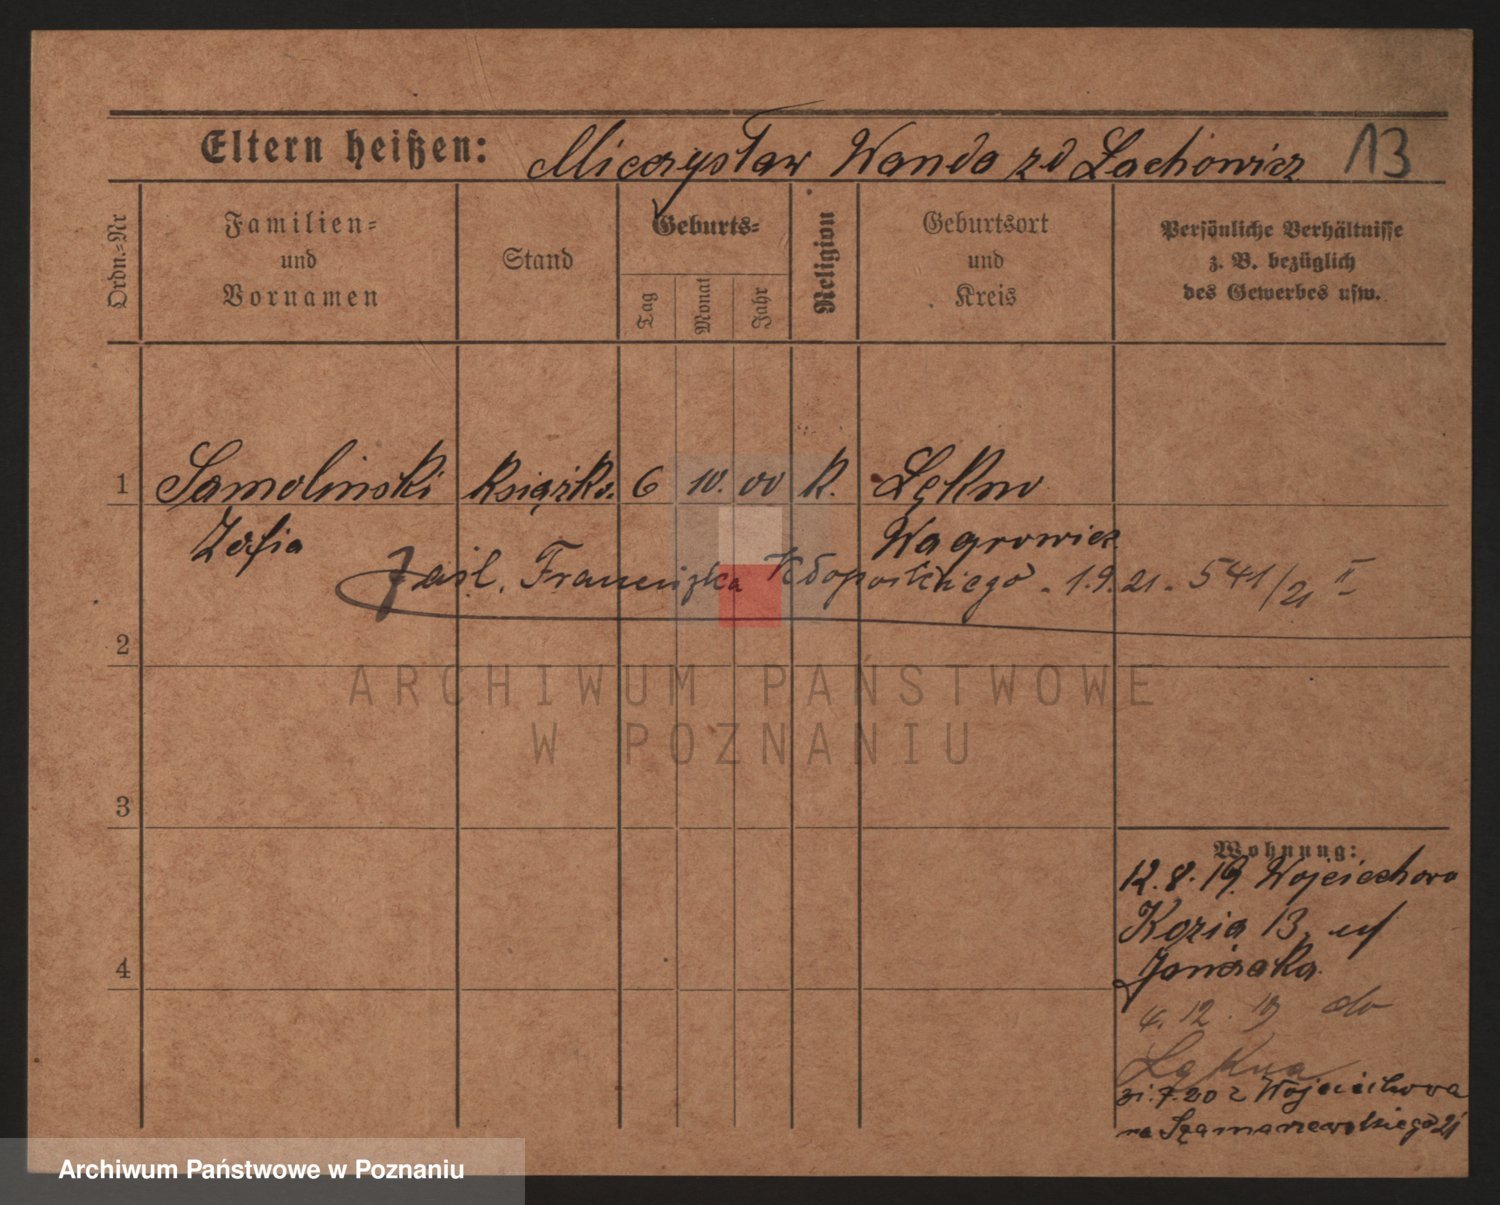 Eltern heißen: Mieczysław Wanda zd Lachowicz 13
Ordn.-Nr
Familien- und Vornamen
Stand
Geburts-
Tag Monat Jahr
Religion
Geburtsort und Kreis
Persönliche Verhältnisse
z. B. bezüglich
des Gewerbes usw.
1 Samolinski książk. 6 10. 00 k. Łękno
Zofia Wągrowiec
Zaśl. Franciszka - 1.9.21. 541/21 II
2
ARCHIWUM PAŃSTWOWE
W POZNANIU
3
Wohnung:
12.8.19. Wojciechowo
Kozia 13,
4
4. 12. 19 do
Łękna
31.7.20 z Wojciechowa
na 21
Archiwum Państwowe w Poznaniu